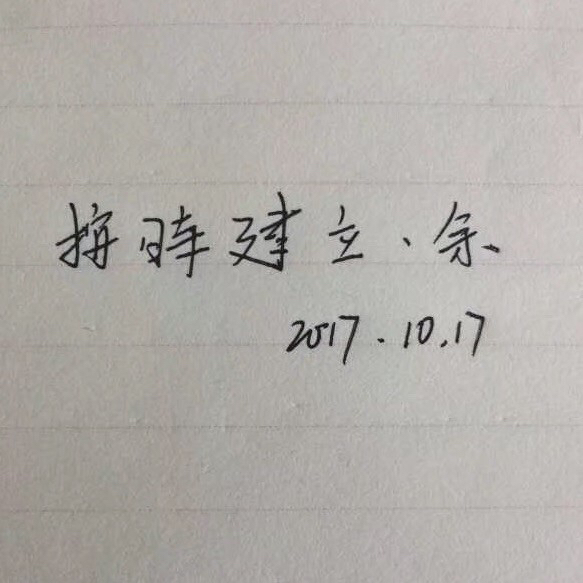 建立、余
2017.10.17